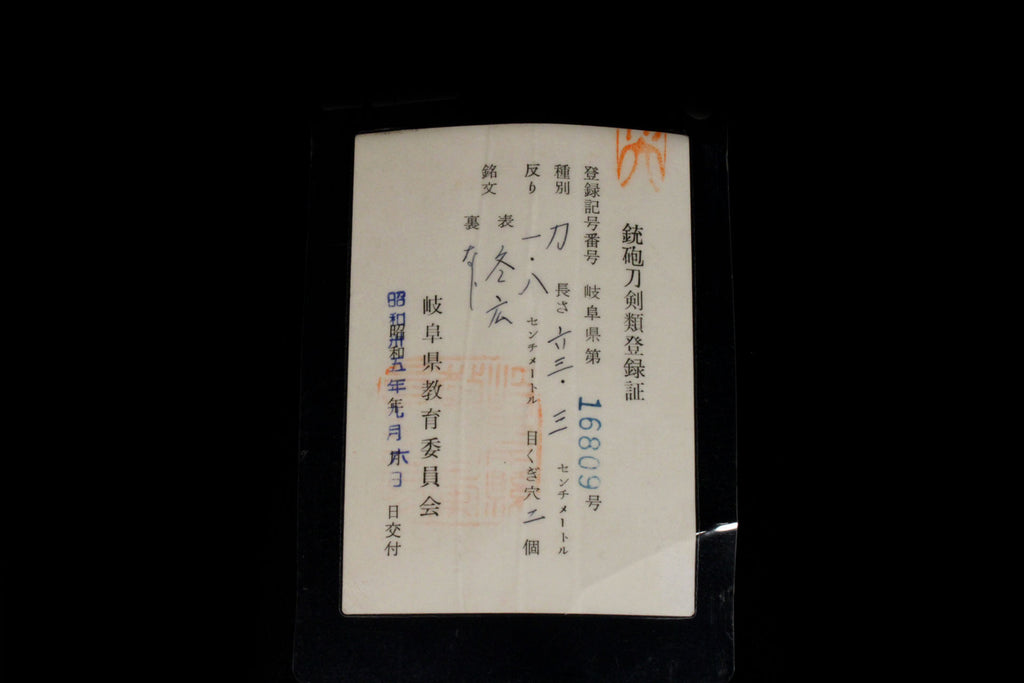 銃砲刀剣類登録証
登録記号番号 岐阜県第 16809 号
種別 刀 長さ 六三・三 センチメートル
反り 一・八 センチメートル 目くぎ穴 二 個
銘文 表 冬広
裏 なし
岐阜県教育委員会
昭和 年 月 日交付